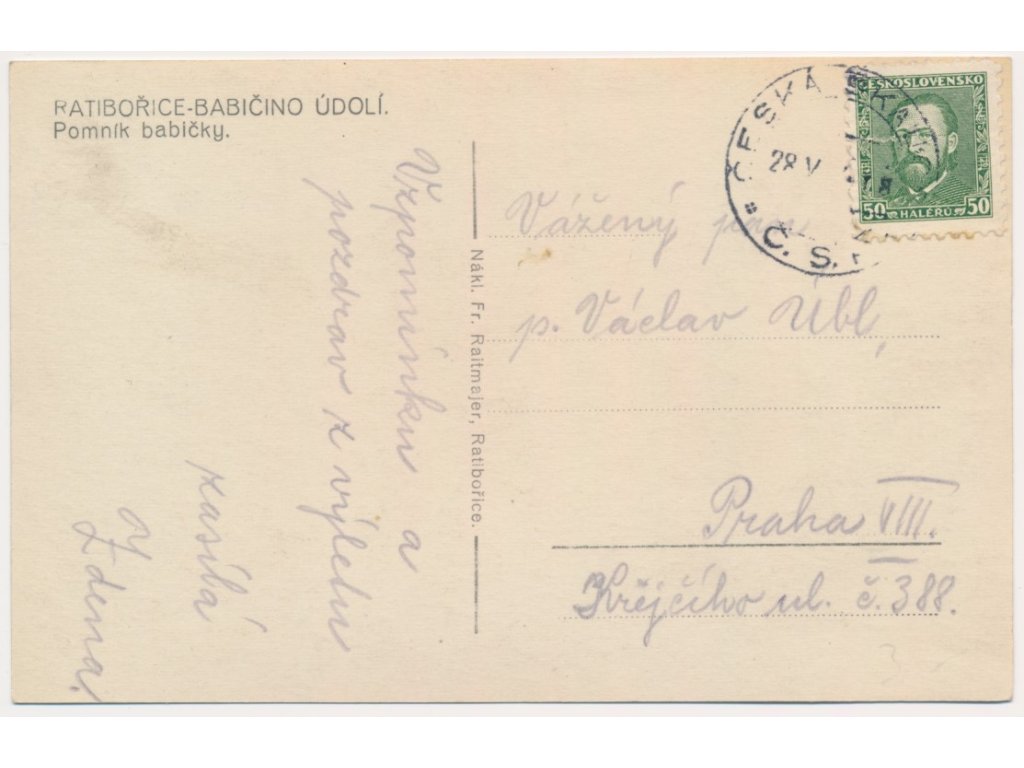 RATIBOŘICE-BABIČINO ÚDOLÍ.
Pomník babičky.
Vzpomínku a
pozdrav z výletu
zasílá
Zdena.
Nákl. Fr. Raitmajer, Ratibořice.
ČESKÁ SKALICE
28 V
Č. S. R.
ČESKOSLOVENSKO
50 HALÉŘŮ 50
Vážený pan
p. Václav Úbl,
Praha VIII.
Krejčího ul. č. 388.